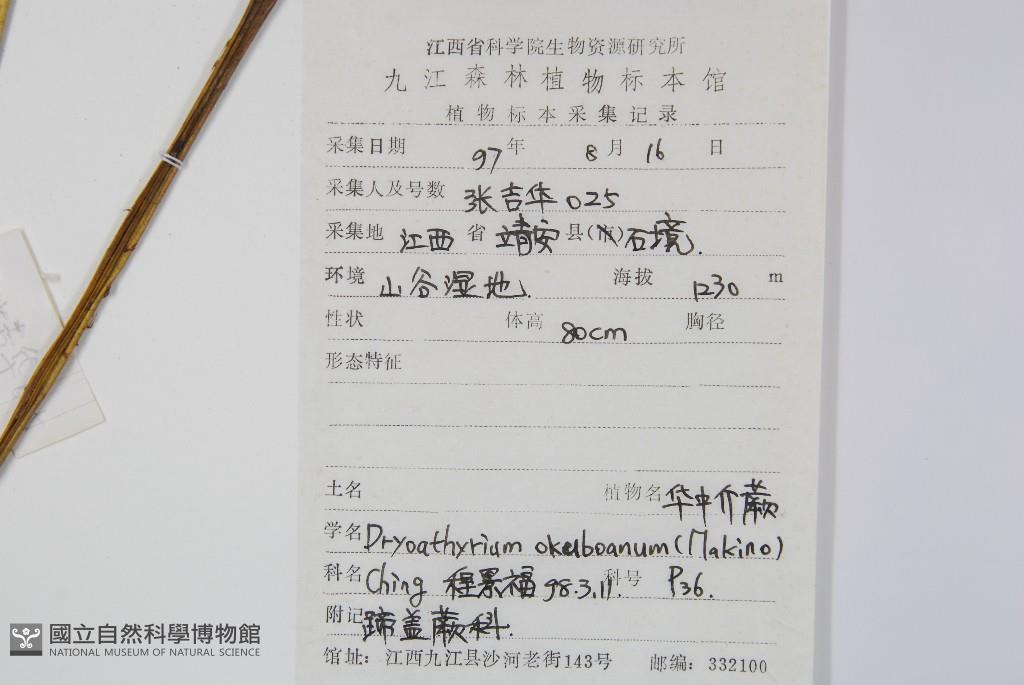 江西省科学院生物资源研究所
九江森林植物标本馆
植物标本采集记录
采集日期 97年 8月 16 日
采集人及号数 张吉华 025
采集地 江西 省 靖安 县(市) 石境.
环境 山谷湿地. 海拔 1230 m
性状 体高 80cm 胸径
形态特征
土名 植物名 华中介蕨
学名 Dryoathyrium okuboanum (Makino)
科名 Ching 程景福 98.3.11. 科号 P36.
附记 蹄盖蕨科.
馆址：江西九江县沙河老街143号 邮编：332100
國立自然科學博物館
NATIONAL MUSEUM OF NATURAL SCIENCE